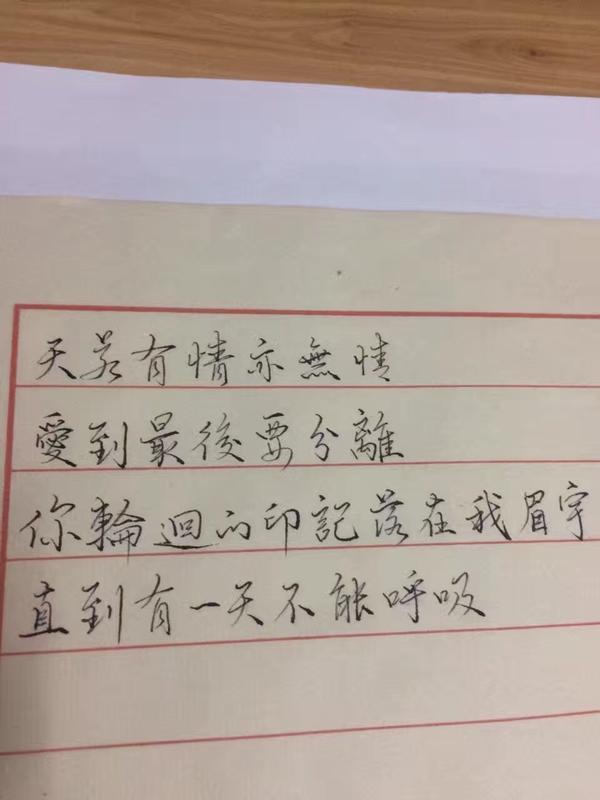 天若有情亦無情
愛到最後要分離
你輪迴的印記落在我眉宇
直到有一天不能呼吸